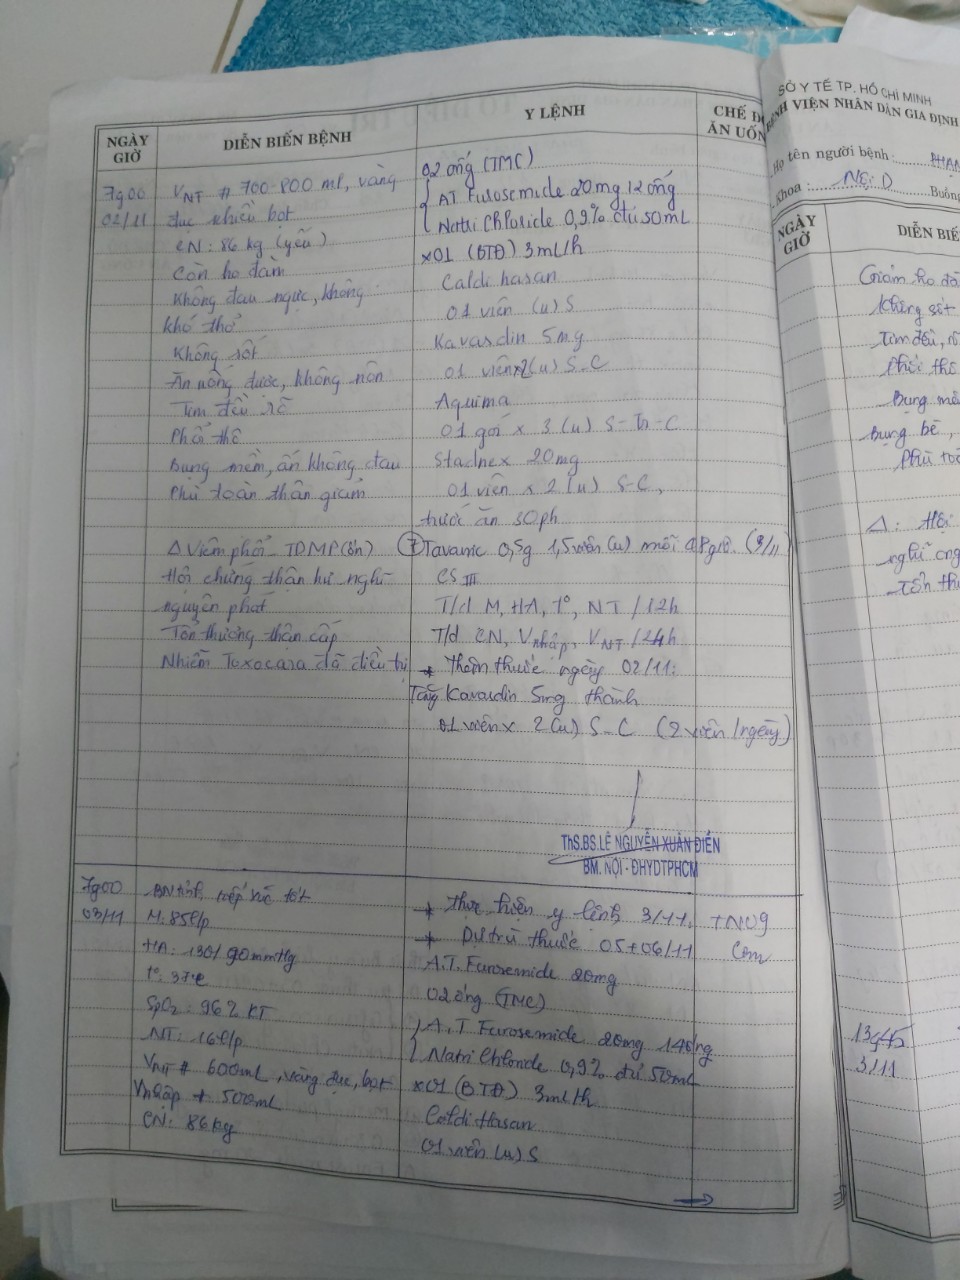 NGÀY GIỜ
DIỄN BIẾN BỆNH
Y LỆNH
CHẾ Đ
ĂN UỐN
7g00
02/11
VNT # 700-800 ml, vàng
đục nhiều bọt
CN: 86 kg (yếu)
Còn ho đàm
Không đau ngực, không
khó thở
Không sốt
Ăn uống được, không nôn
Tim đều rõ
Phổi thô
Bụng mềm, ấn không đau
Phù toàn thân giảm
Δ Viêm phổi TDMP (ổn)
Hội chứng thận hư nghĩ
nguyên phát
Tổn thương thận cấp
Nhiễm Toxocara đã điều trị
02 ống (TMC)
AT Furosemide 20mg 12 ống
Natri Chloride 0,9% đủ 50mL
x01 (BTĐ) 3ml/h
Caldi hasan
01 viên (u) S
Kavasdin 5mg
01 viên x2 (u) S-C
Aquima
01 gói x 3 (u) S-Tr-C
Stadnex 20mg
01 viên x 2 (u) S-C,
trước ăn 30ph
(7) Tavanic 0,5g 1,5 viên (u) mỗi 48 giờ. (3/11)
CS III
T/d M, HA, t°, NT /12h
T/d CN, Vnhập, VNT /24h
* Thêm thuốc ngày 02/11:
Tăng Kavasdin 5mg thành
01 viên x 2 (u) S-C (2 viên/ngày)
ThS.BS.LÊ NGUYỄN XUÂN ĐIỀN
BM. NỘI - ĐHYDTPHCM
7g00
03/11
BN tỉnh, tiếp xúc tốt
M: 85l/p
HA: 130/90mmHg
t°: 37°C
SpO2: 96% KT
NT: 16l/p
VNT # 600mL, vàng đục, bọt
Vnhập # 500mL
CN: 86kg
* Thực hiện y lệnh 3/11.
* Dự trù thuốc 05+06/11
A.T. Furosemide 20mg
02 ống (TMC)
A.T Furosemide 20mg 14 ống
Natri Chloride 0,9% đủ 50mL
x01 (BTĐ) 3ml/h
Caldi Hasan
01 viên (u) S
TN09
Cơm
→
SỞ Y TẾ TP. HỒ CHÍ MINH
NH VIỆN NHÂN DÂN GIA ĐỊNH
Họ tên người bệnh: PHAN
Khoa: Nội D
Buồng
NGÀY GIỜ
DIỄN BIẾ
Giảm ho đà
Không sốt
Tim đều, rõ
Phổi thô
Bụng mề
Bụng bè,
Phù toà
Δ: Hội
nghĩ ng
Tổn th
13g45
3/11